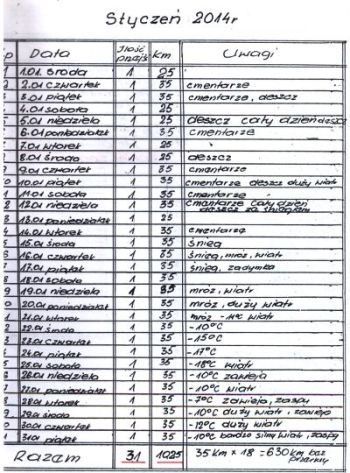 Styczeń 2014r
p Data Ilość przejść km Uwagi
1 1.01. środa 1 25
2 2.01 czwartek 1 35 cmentarze
3 3.01 piątek 1 35 cmentarze, deszcz
4 4.01 sobota 1 25
5 5.01 niedziela 1 25 deszcz cały dzień
6 6.01 poniedziałek 1 35 cmentarze
7 7.01 wtorek 1 25
8 8.01 środa 1 25 deszcz
9 9.01 czwartek 1 35 cmentarze
0 10.01 piątek 1 35 cmentarze deszcz duży wiatr
1 11.01 sobota 1 35 cmentarze
2 12.01 niedziela 1 35 cmentarze cały dzień
deszcz ze śniegiem
3 13.01 poniedziałek 1 25
4 14.01 wtorek 1 35 cmentarze
5 15.01 środa 1 35 śnieg
6 16.01 czwartek 1 35 śnieg, mróz, wiatr
7 17.01 piątek 1 35 śnieg, zadymka
8 18.01 sobota 1 35
9 19.01 niedziela 1 35 mróz, wiatr
0 20.01 poniedziałek 1 35 mróz, duży wiatr
1 21.01 wtorek 1 35 mróz wiatr
2 22.01 środa 1 35 -10°C
3 23.01 czwartek 1 35 -15°C
4 24.01 piątek 1 35 -17°C
5 25.01 sobota 1 35 -18°C wiatr
6 26.01 niedziela 1 35 -10°C zawieja
7 27.01 poniedziałek 1 35 -10°C wiatr
8 28.01 wtorek 1 35 -7°C zawieja, zaspy
9 29.01 środa 1 35 -10°C duży wiatr, zawieja
0 30.01 czwartek 1 35 -12°C duży wiatr
1 31.01 piątek 1 35 -10°C bardzo silny wiatr, zaspy
Razem 31 1025 35 km x 18 = 630 km bez
przerwy